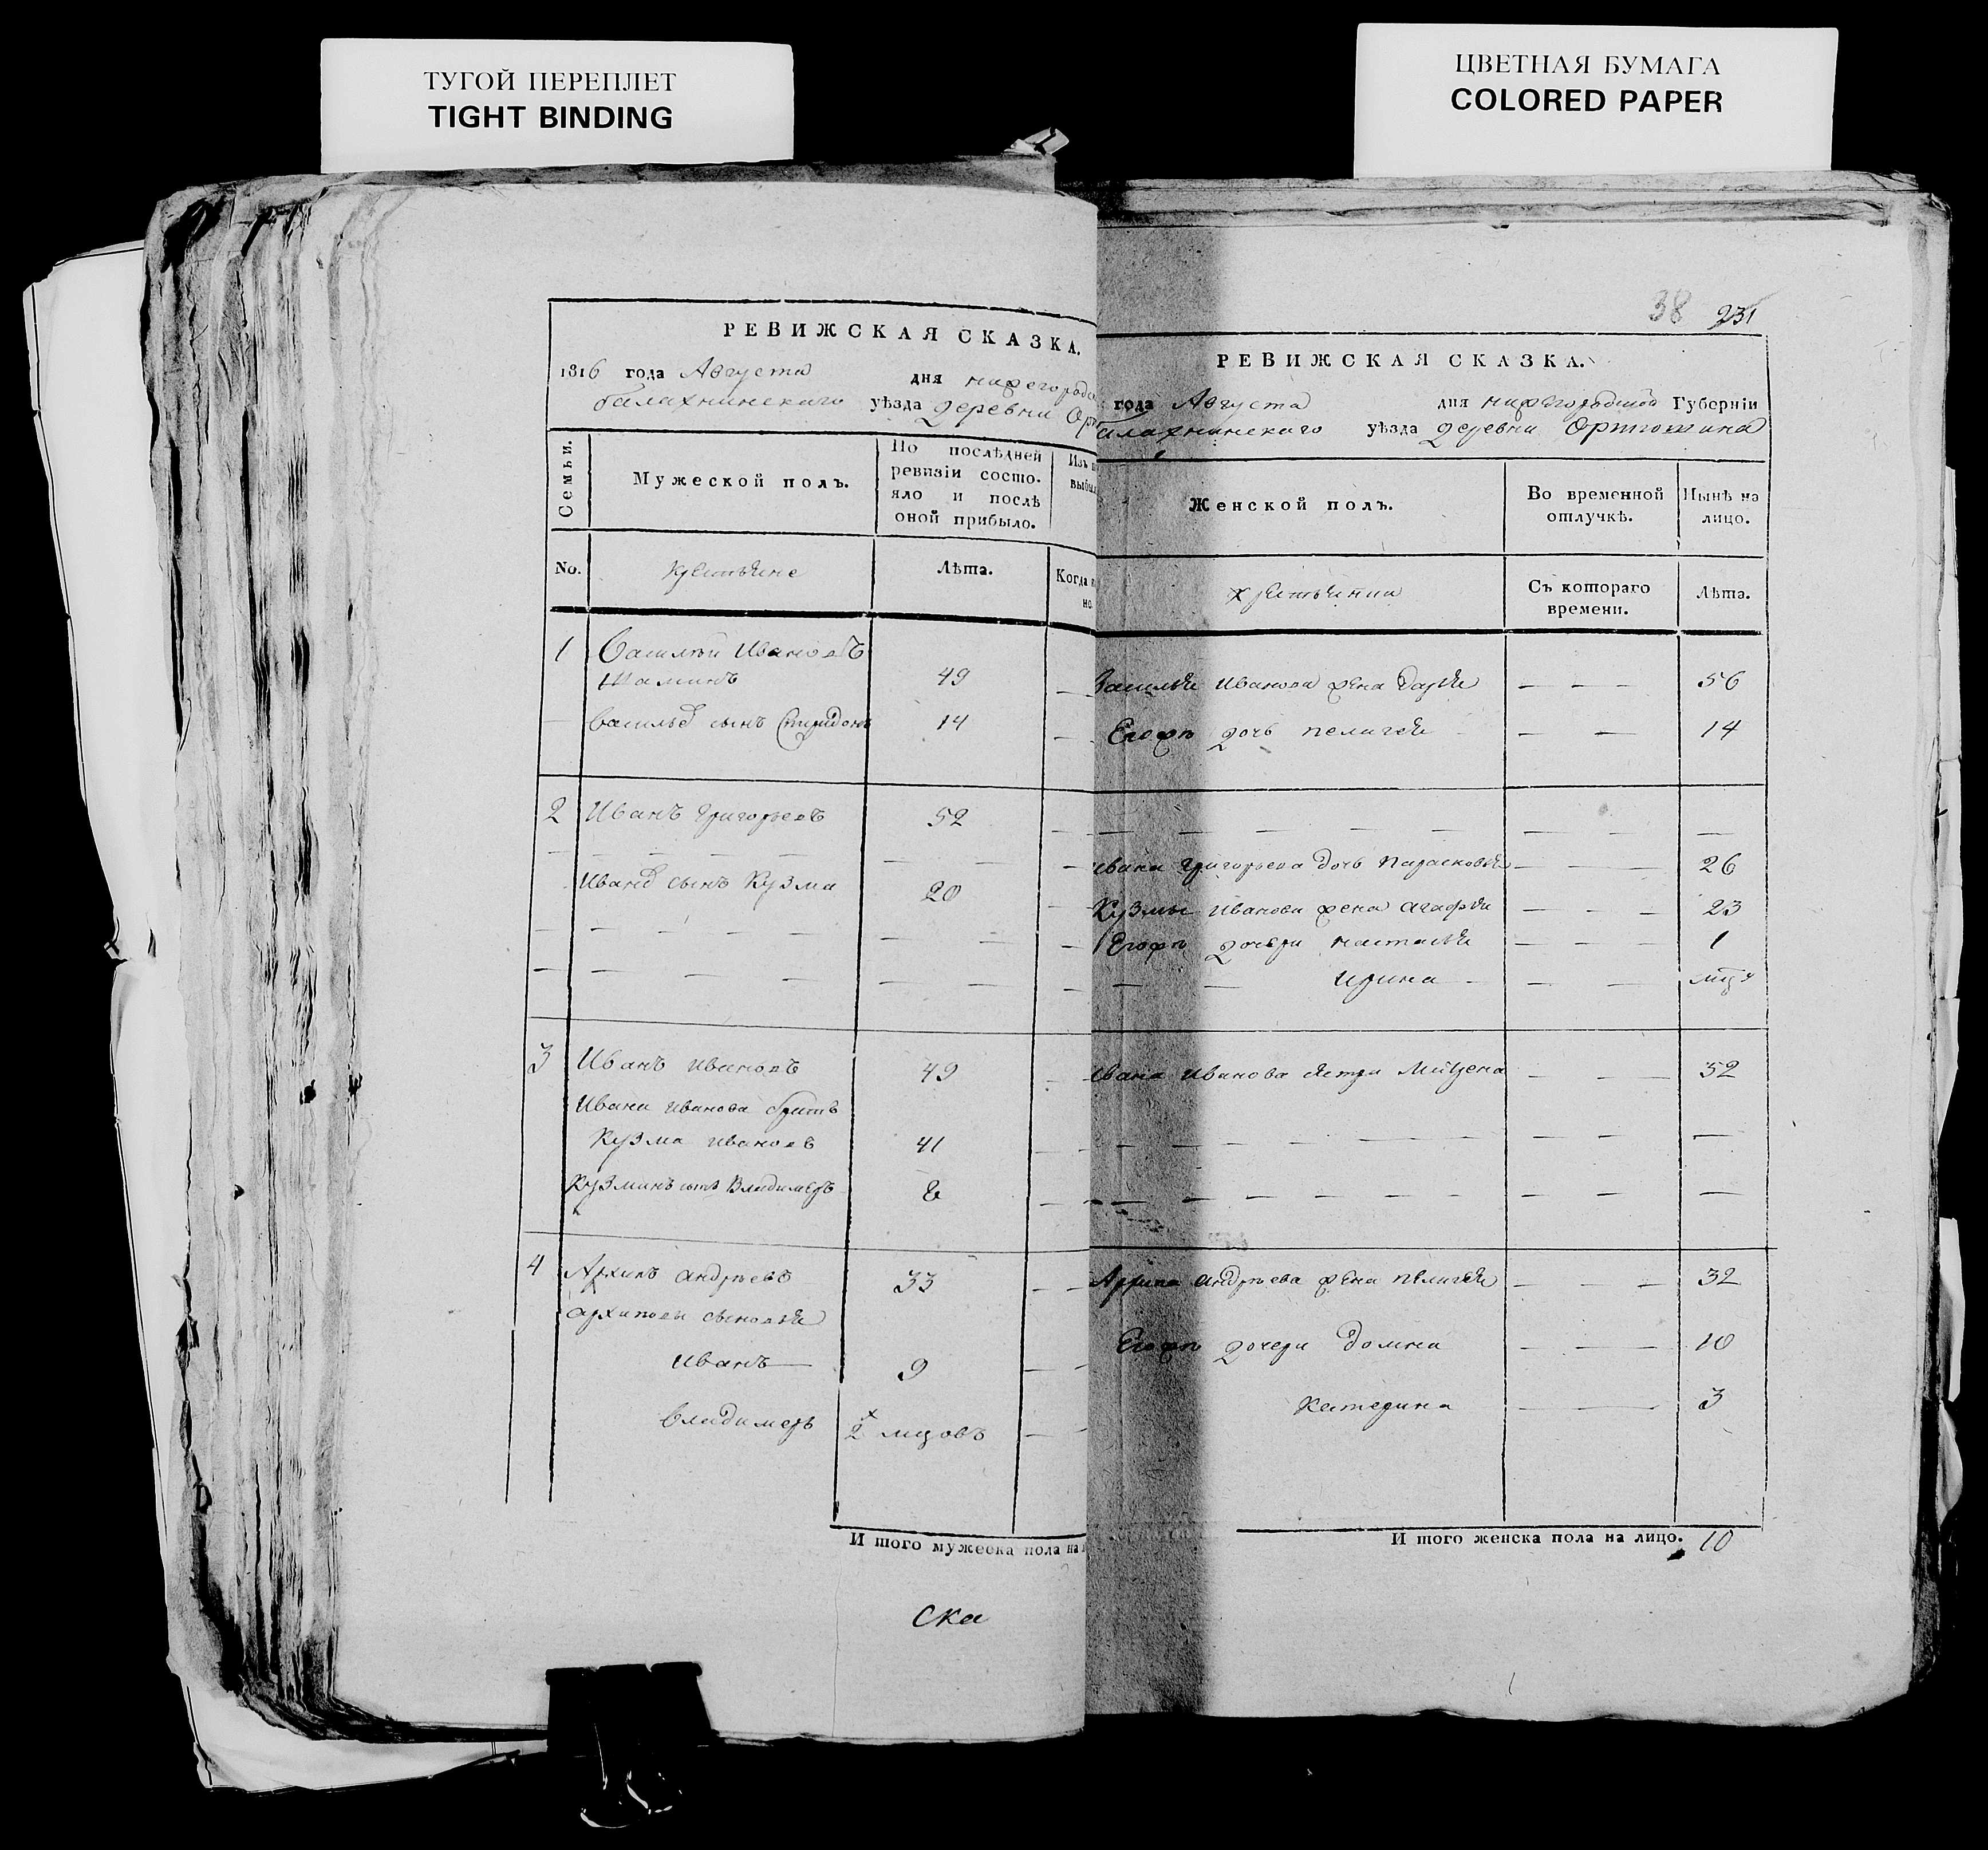 ТУГОЙ ПЕРЕПЛЕТ
TIGHT BINDING
ЦВЕТНАЯ БУМАГА
COLORED PAPER
РЕВИЖСКАЯ СКАЗКА.
1816 года Августа дня нижегородс
балахнинскаго уѣзда деревни Ор
Семьи.
Мужеской полъ.
По послѣдней
ревизіи состо-
яло и послѣ
оной прибыло.
Изъ
выбы
No.
крестьяне
Лѣта.
Когда
но
1 Василей Ивановъ
Шаминъ 49
Васильевъ сынъ Спиридонъ 14
2 Иванъ Григорьевъ 52
Ивановъ сынъ Кузма 20
3 Иванъ Ивановъ 49
Ивана Иванова братъ
Кузма Ивановъ 41
Кузминъ сынъ Владимеръ
4 Архипъ Андрѣевъ 33
Архиповы сыновья
Иванъ 9
Владимеръ 2 мцовъ
И того мужеска пола на
Ска
38 231
РЕВИЖСКАЯ СКАЗКА.
года Августа дня нижегородской Губерніи
балахнинскаго уѣзда деревни
Женской полъ.
Во временной
отлучкѣ.
Нынѣ на
лицо.
крестьянки
Съ котораго
времени.
Лѣта.
Василья Иванова жена Дарья 56
Егожъ дочь пелагея 14
Ивана Григорьева дочь Парасковья 26
Кузмы Иванова жена агафья 23
Егожъ дочери насталья 1
Ирина
Ивана Иванова 52
Архипа андрѣева жена пелагея 32
Егожъ дочери Домна 10
Катерина 3
И того женска пола на лицо. 10